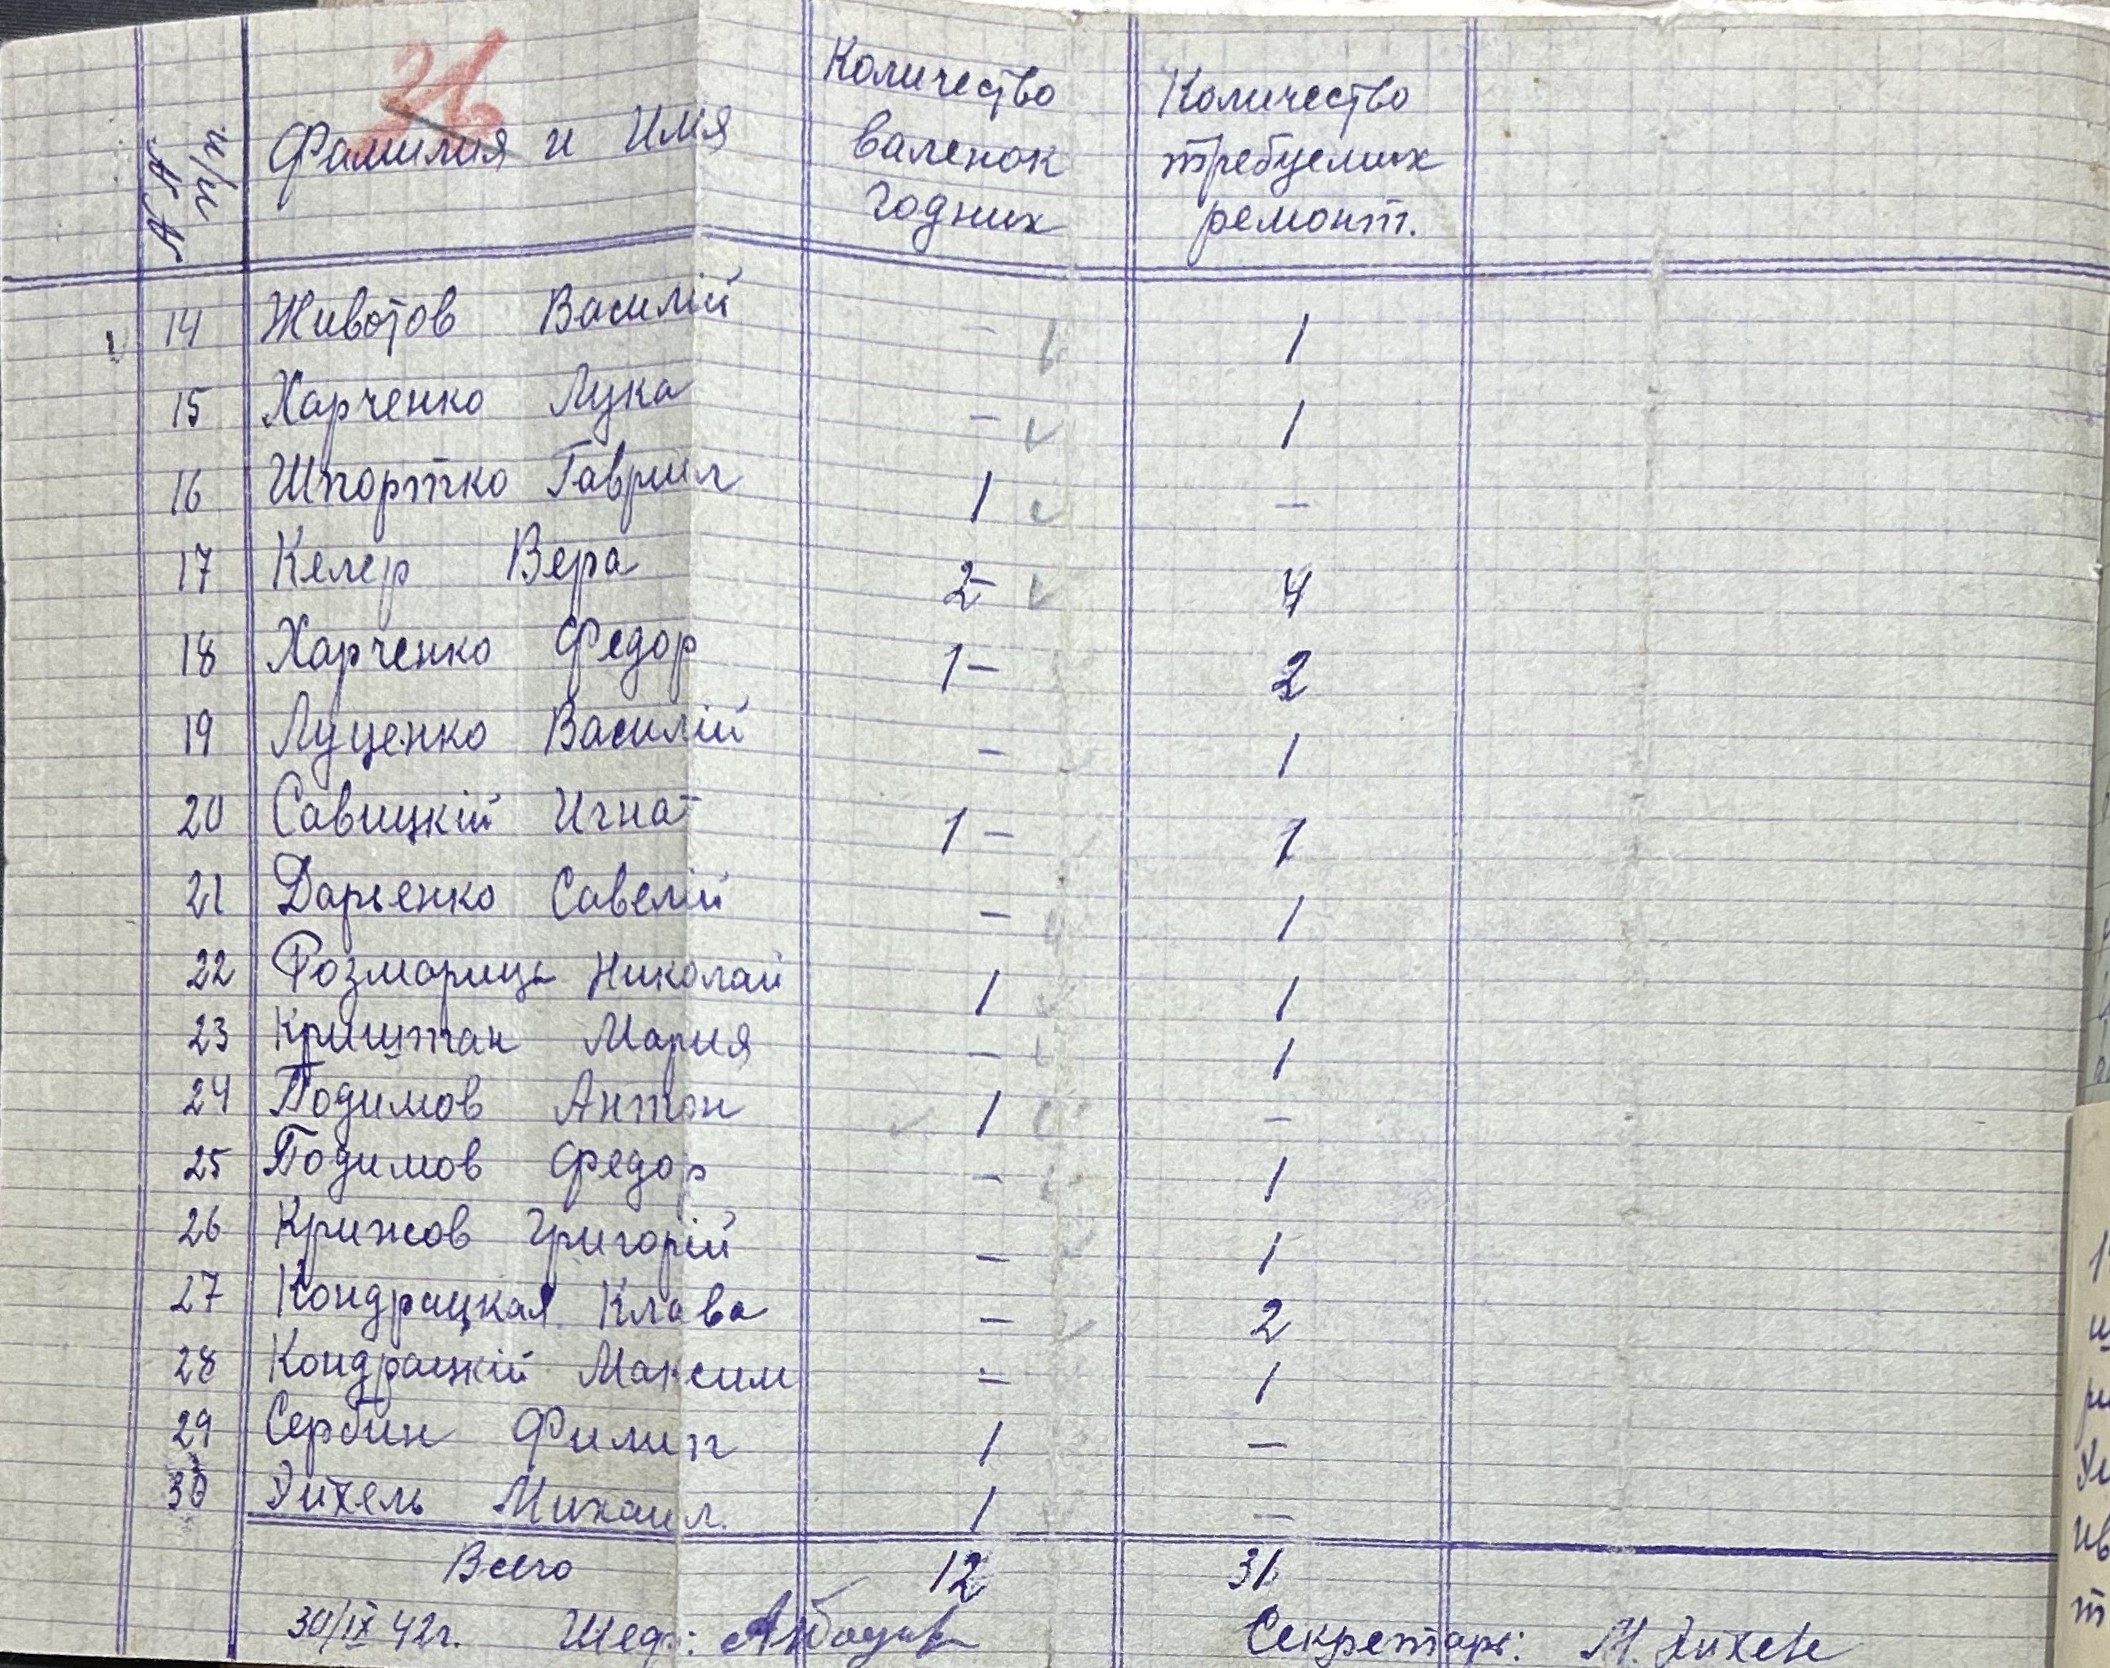 26
№№ п/п. Фамилия и Имя Количество валенок годних Количество требуемих ремонт.
14 Животов Василій – 1
15 Харченко Лука – 1
16 Шпортко Гаврил 1 –
17 Келер Вера 2– 4
18 Харченко Федор 1– 2
19 Луценко Василій – 1
20 Савицкій Игнат 1– 1
21 Дарьенко Савелій – 1
22 Розмариць Николай 1 1
23 Криштан Мария – 1
24 Подимов Антон 1 –
25 Подимов Федор – 1
26 Крижов Григорій – 1
27 Кондрацкая Клава – 2
28 Кондрацкій Максим – 1
29 Сербин Филип 1 –
30 Эйхель Михаил. 1 –
Всего 12 31
30/IX 42г. Шеф: Секретарь: М. Эйхель